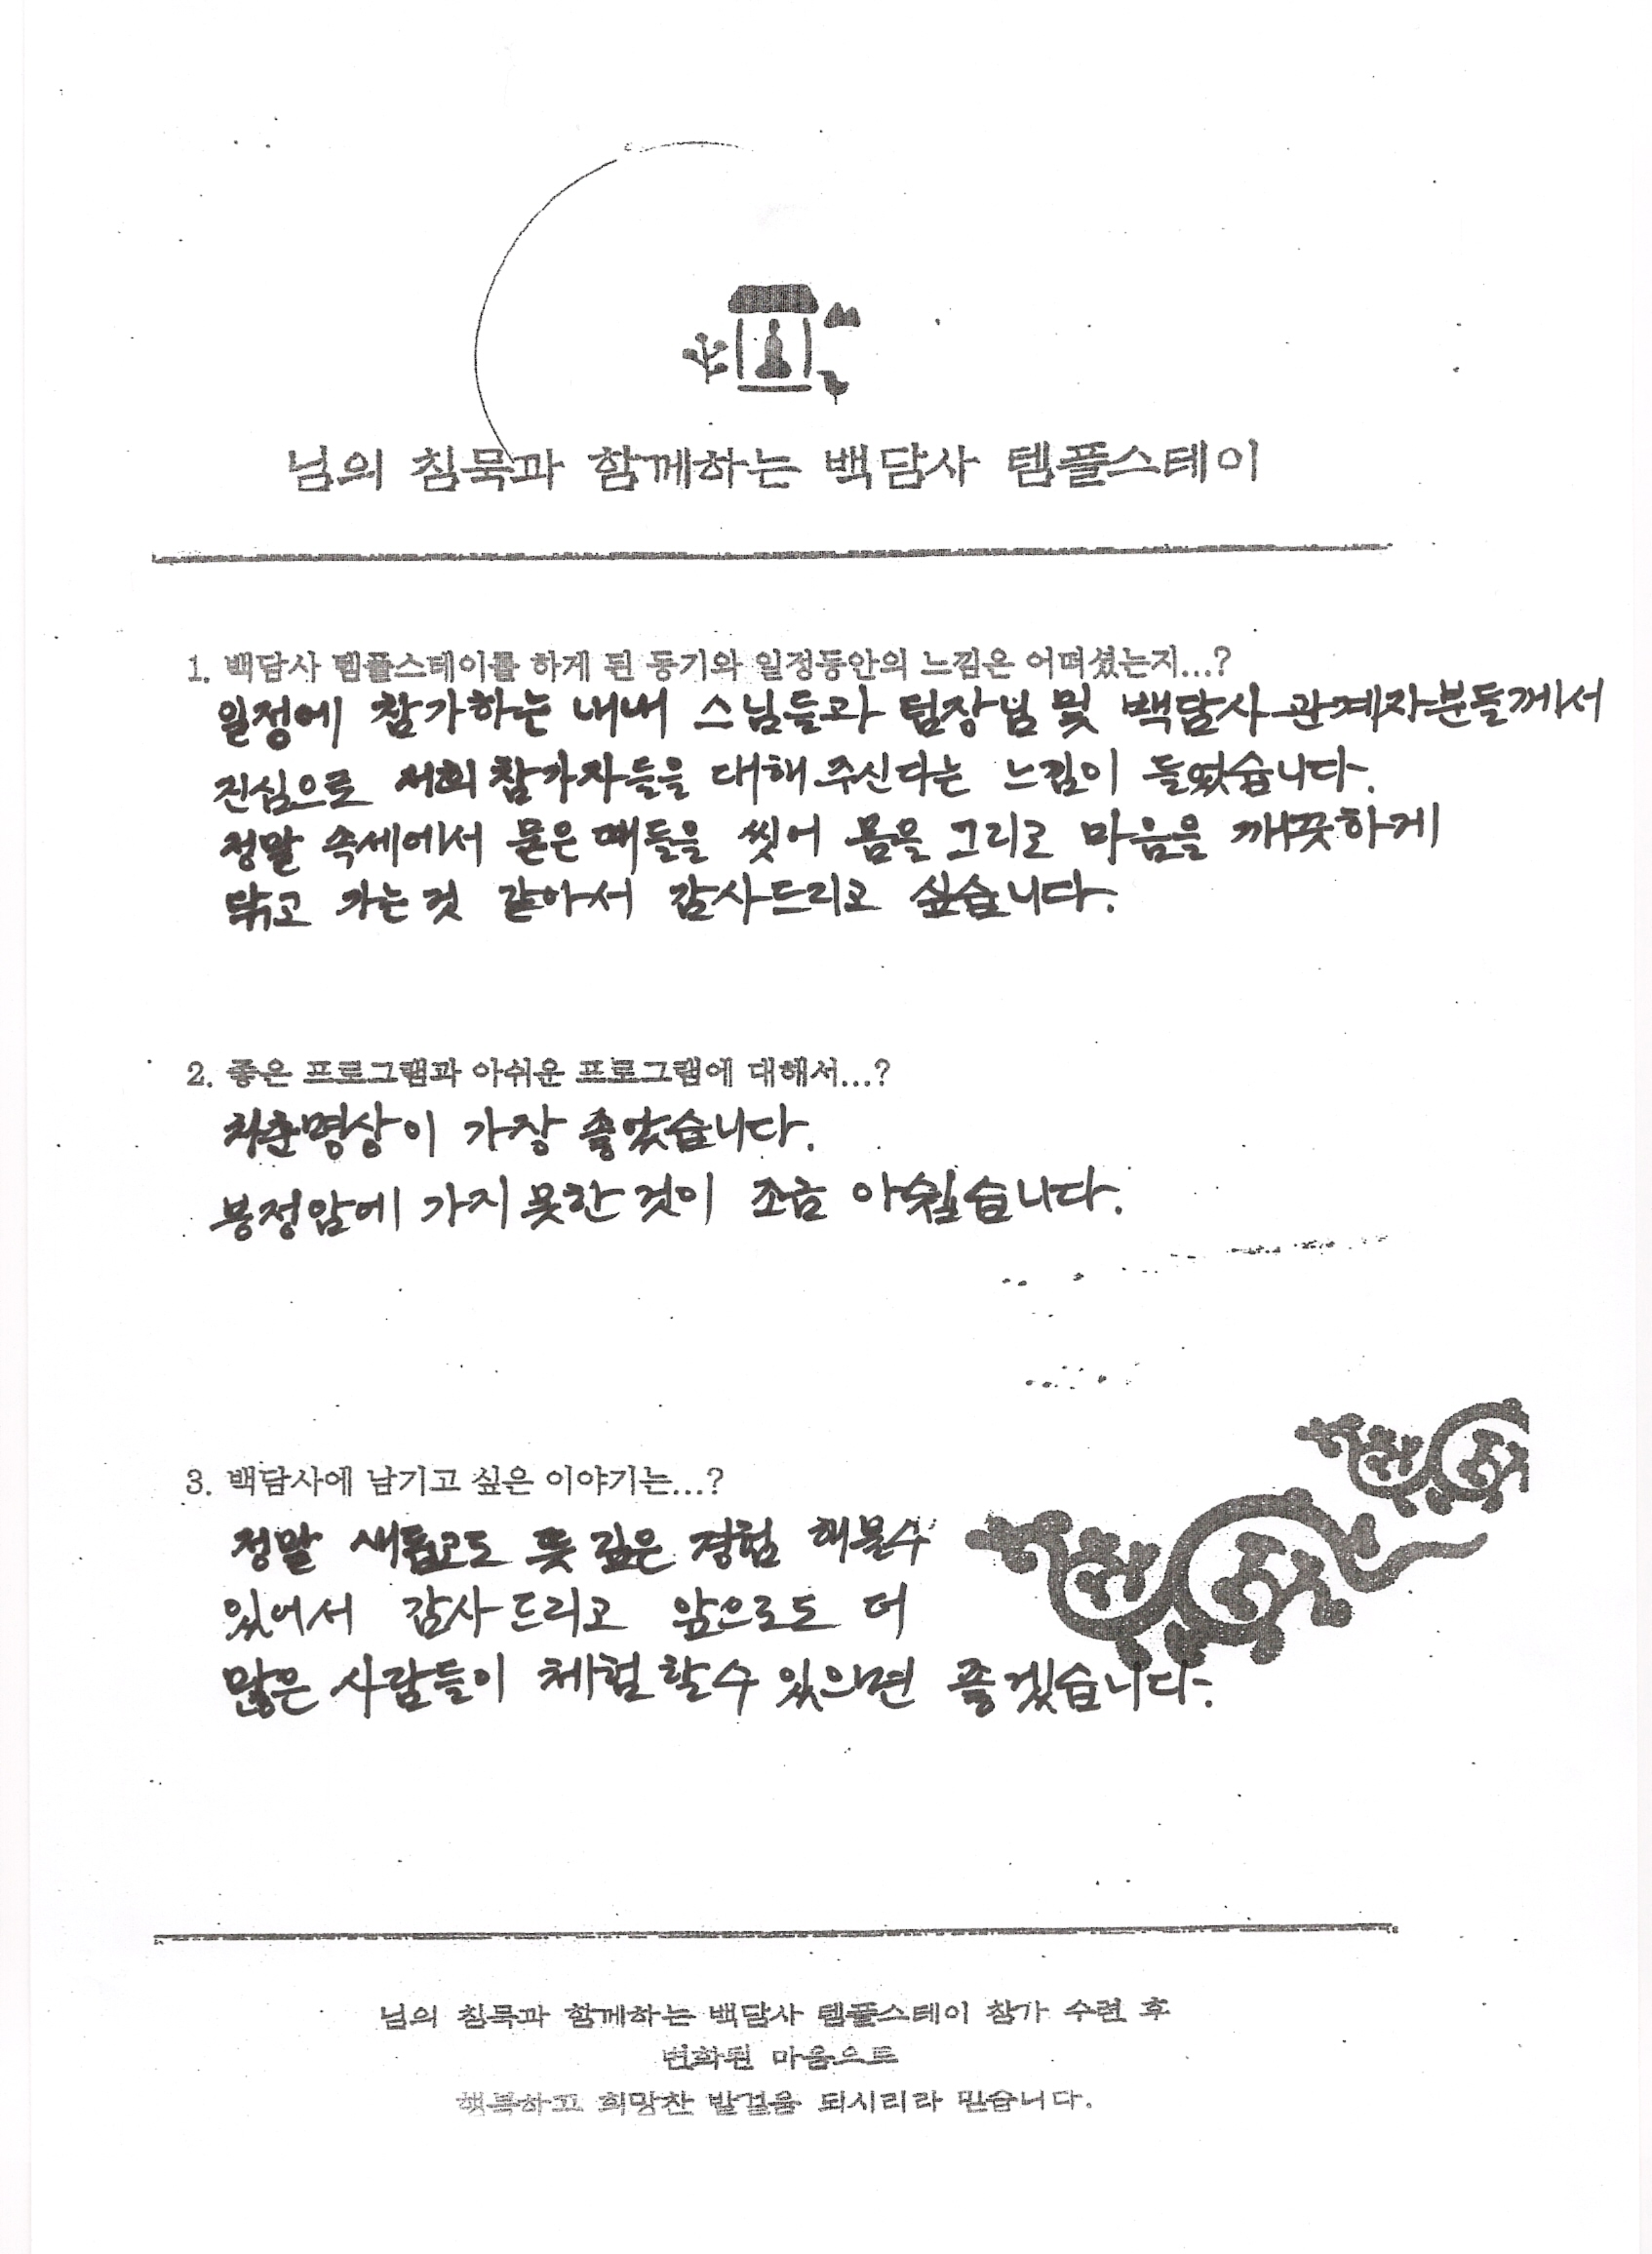 님의 침묵과 함께하는 백담사 템플스테이
1. 백담사 템플스테이를 하게 된 동기와 일정동안의 느낌은 어떠셨는지...?
일정에 참가하는 내내 스님들과 팀장님 및 백담사 관계자분들께서
진심으로 저희 참가자들을 대해 주신다는 느낌이 들었습니다.
정말 속세에서 묻은 때들을 씻어 몸을 그리고 마음을 깨끗하게
닦고 가는 것 같아서 감사드리고 싶습니다.
2. 좋은 프로그램과 아쉬운 프로그램에 대해서...?
차춘명상이 가장 좋았습니다.
봉정암에 가지 못한 것이 조금 아쉽습니다.
3. 백담사에 남기고 싶은 이야기는...?
정말 새롭고도 뜻 깊은 경험 해볼수
있어서 감사드리고 앞으로도 더
많은 사람들이 체험 할수 있으면 좋겠습니다.
님의 침묵과 함께하는 백담사 템플스테이 참가 수련 후
변화된 마음으로
행복하고 희망찬 발걸음 되시리라 믿습니다.